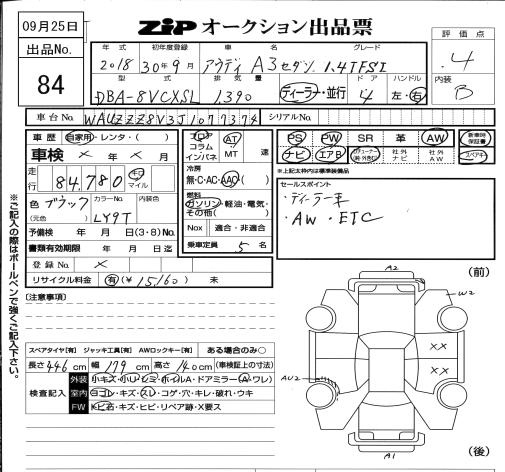 09月25日
出品No.
84
ZIP オークション出品票
評価点
4
内装
B
年式 初年度登録 車名 グレード
2018 30年9月 アウディ A3セダン 1.4TFSI
型式 排気量 ドア ハンドル
DBA-8VCXSL 1,390 ディーラー・並行 4 左・右
車台No. WAUZZZ8V3J1077374 シリアルNo.
車歴 自家用・レンタ・( )
車検 × 年 × 月
走行 84,780 キロ マイル
色 ブラック カラーNo. LY9T 内装色
(元色)
予備検 年 月 日(3・8)No.
書類有効期限 年 月 日迄
登録No. ×
リサイクル料金 有(¥15,160) 未
フロア コラム インパネ AT MT 速
冷房
無・C・AC・AAC
燃料
ガソリン・軽油・電気・その他( )
Nox 適合・非適合
乗車定員 5 名
PS PW SR 革 AW 新車時保証書
ナビ エアB 社外ナビ 社外AW スペアキー
※上記太枠内は標準装備品
セールスポイント
・ディーラー車
・AW・ETC
※ご記入の際はボールペンで強くご記入下さい。
[注意事項]
スペアタイヤ[有] ジャッキ工具[有] AWロックキー[有] ある場合のみ○
長さ 446 cm 幅 179 cm 高さ 140 cm (車検証上の寸法)
検査記入
外装 小キズ・小U・シミ・ホイルA・ドアミラー(A・ワレ)
室内 ヨゴレ・キズ・スレ・コゲ・穴・キレ・破れ・ウキ
FW トビ石・キズ・ヒビ・リペア跡・X要ス
(前)
A2
W2
××
××
AU2
A1
(後)